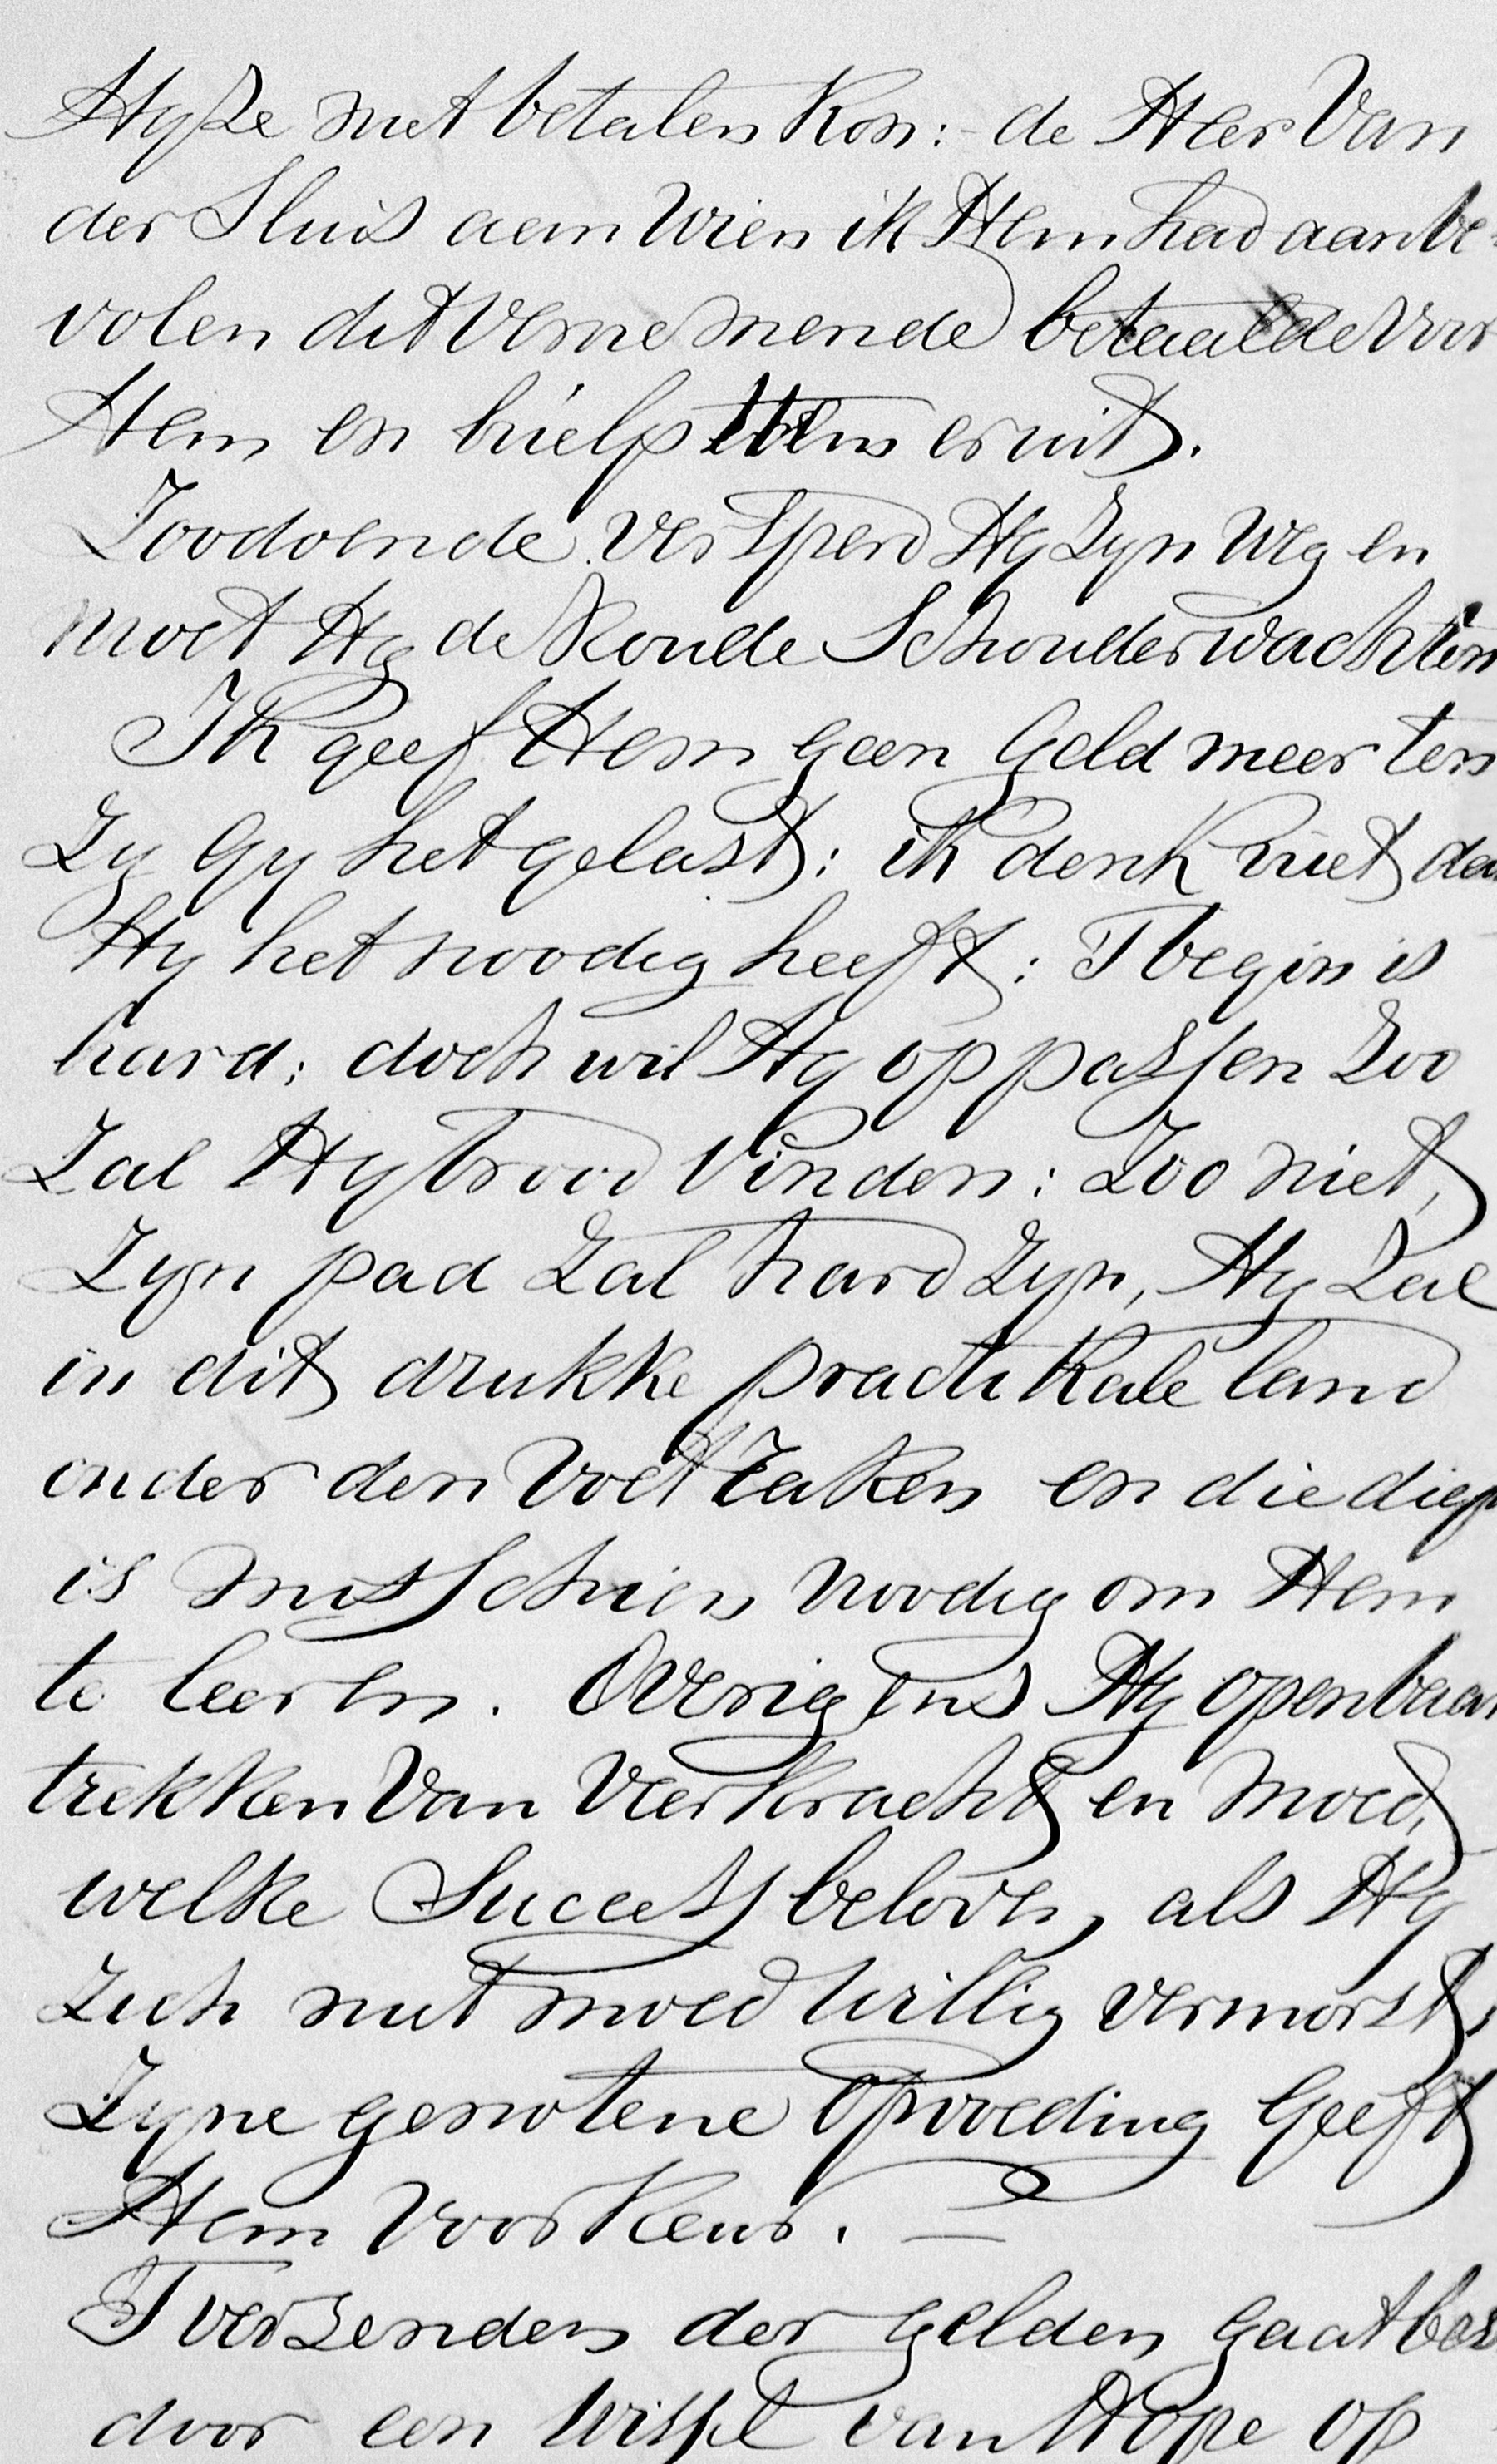 Hy Ze niet betalen Kon: - de Heer Van
der Sluis aan Wien ik Hem had aanbe-
volen dit Vernemende betaalde voor
Hem en hielp Hem eruit.
Zoodoende versperd Hy Zyn Weg en
moet Hy de Koude Schouder wachten
Ik geef Hem geen Geld meer ten
Zy Gy het gelast: ik denk niet dat
Hy het noodig heeft: T begin is
hard; doch wil Hy oppassen Zoo
Zal Hy brood Vinden: Zoo niet,
Zyn pad Zal hard Zyn, Hy Zal
in dit drukke practikale land
onder den Voet Raken en die diep
is misschien Noodig om Hem
te leeren. Overigens Hy openbaar
trekken Van Veerkracht en Moed,
welke Succes beloven, als Hy
Zich niet moedwillig vermorst;
Zyne genotene Opvoeding Geeft
Hem Voorkeur. —
T verzenden der gelden gaat bes
door een Wissel van Hope op